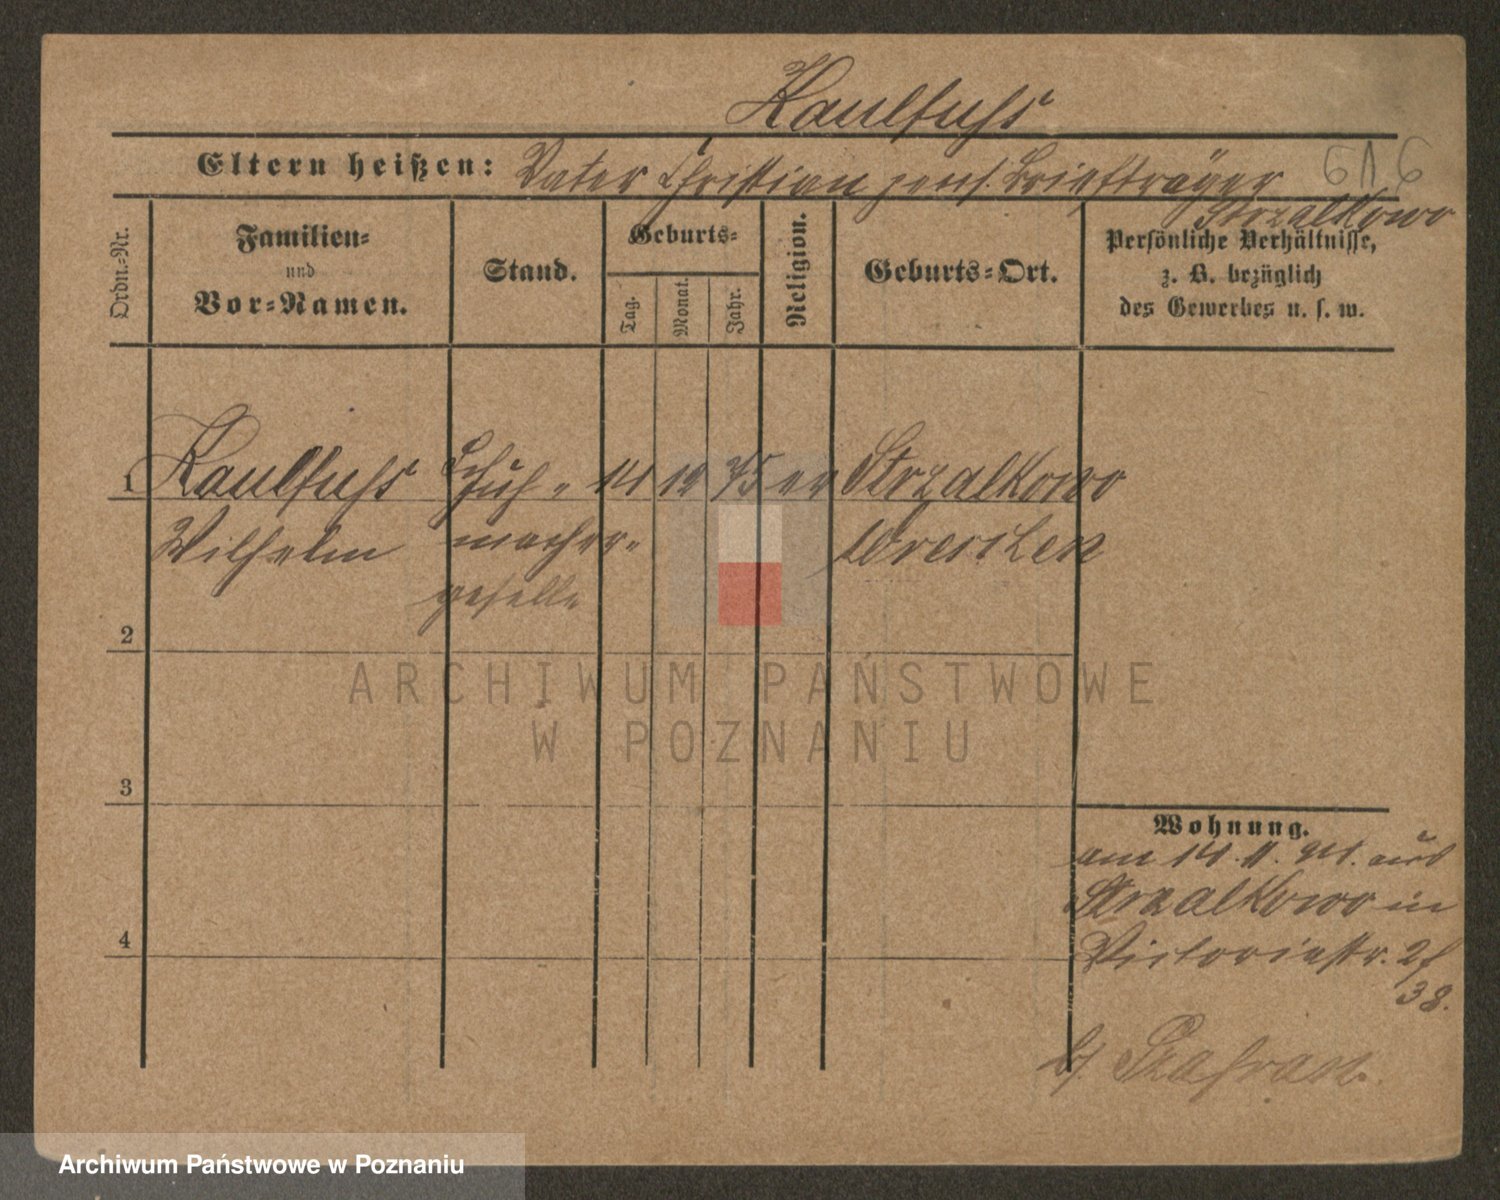 Kaulfuss
Eltern heißen: Vater Christian pens. Briefträger
616
Strzalkowo
Ordn.-Nr.
Familien-
und
Vor-Namen.
Stand.
Geburts-
Tag.
Monat.
Jahr.
Religion.
Geburts-Ort.
Persönliche Verhältnisse,
z. B. bezüglich
des Gewerbes u. s. w.
1 Kaulfuss Schuh- 14 12 75 ev Strzalkowo
Wilhelm macher- Wreschen
geselle
2
3
4
Wohnung.
am 14. 11. 94. aus
Strzalkowo in
Victoriastr. 2f
38.
b/ Szafran.
ARCHIWUM PAŃSTWOWE
W POZNANIU
Archiwum Państwowe w Poznaniu